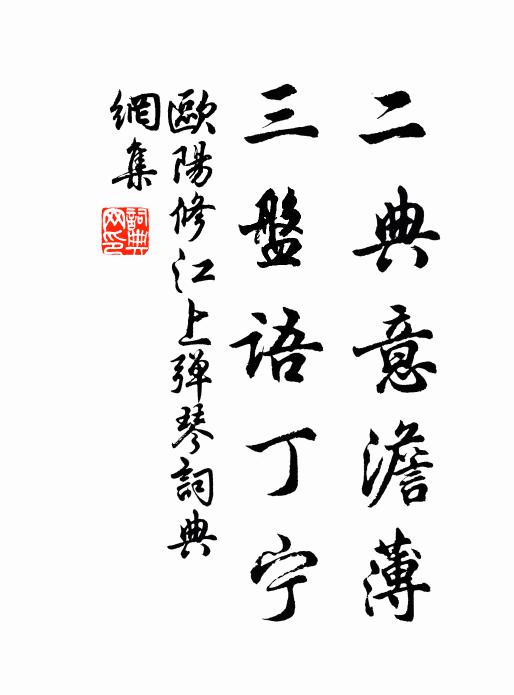 二典意澹薄
三盤語丁宁
歐陽修江上弹琴詞典
網集
詞典网印